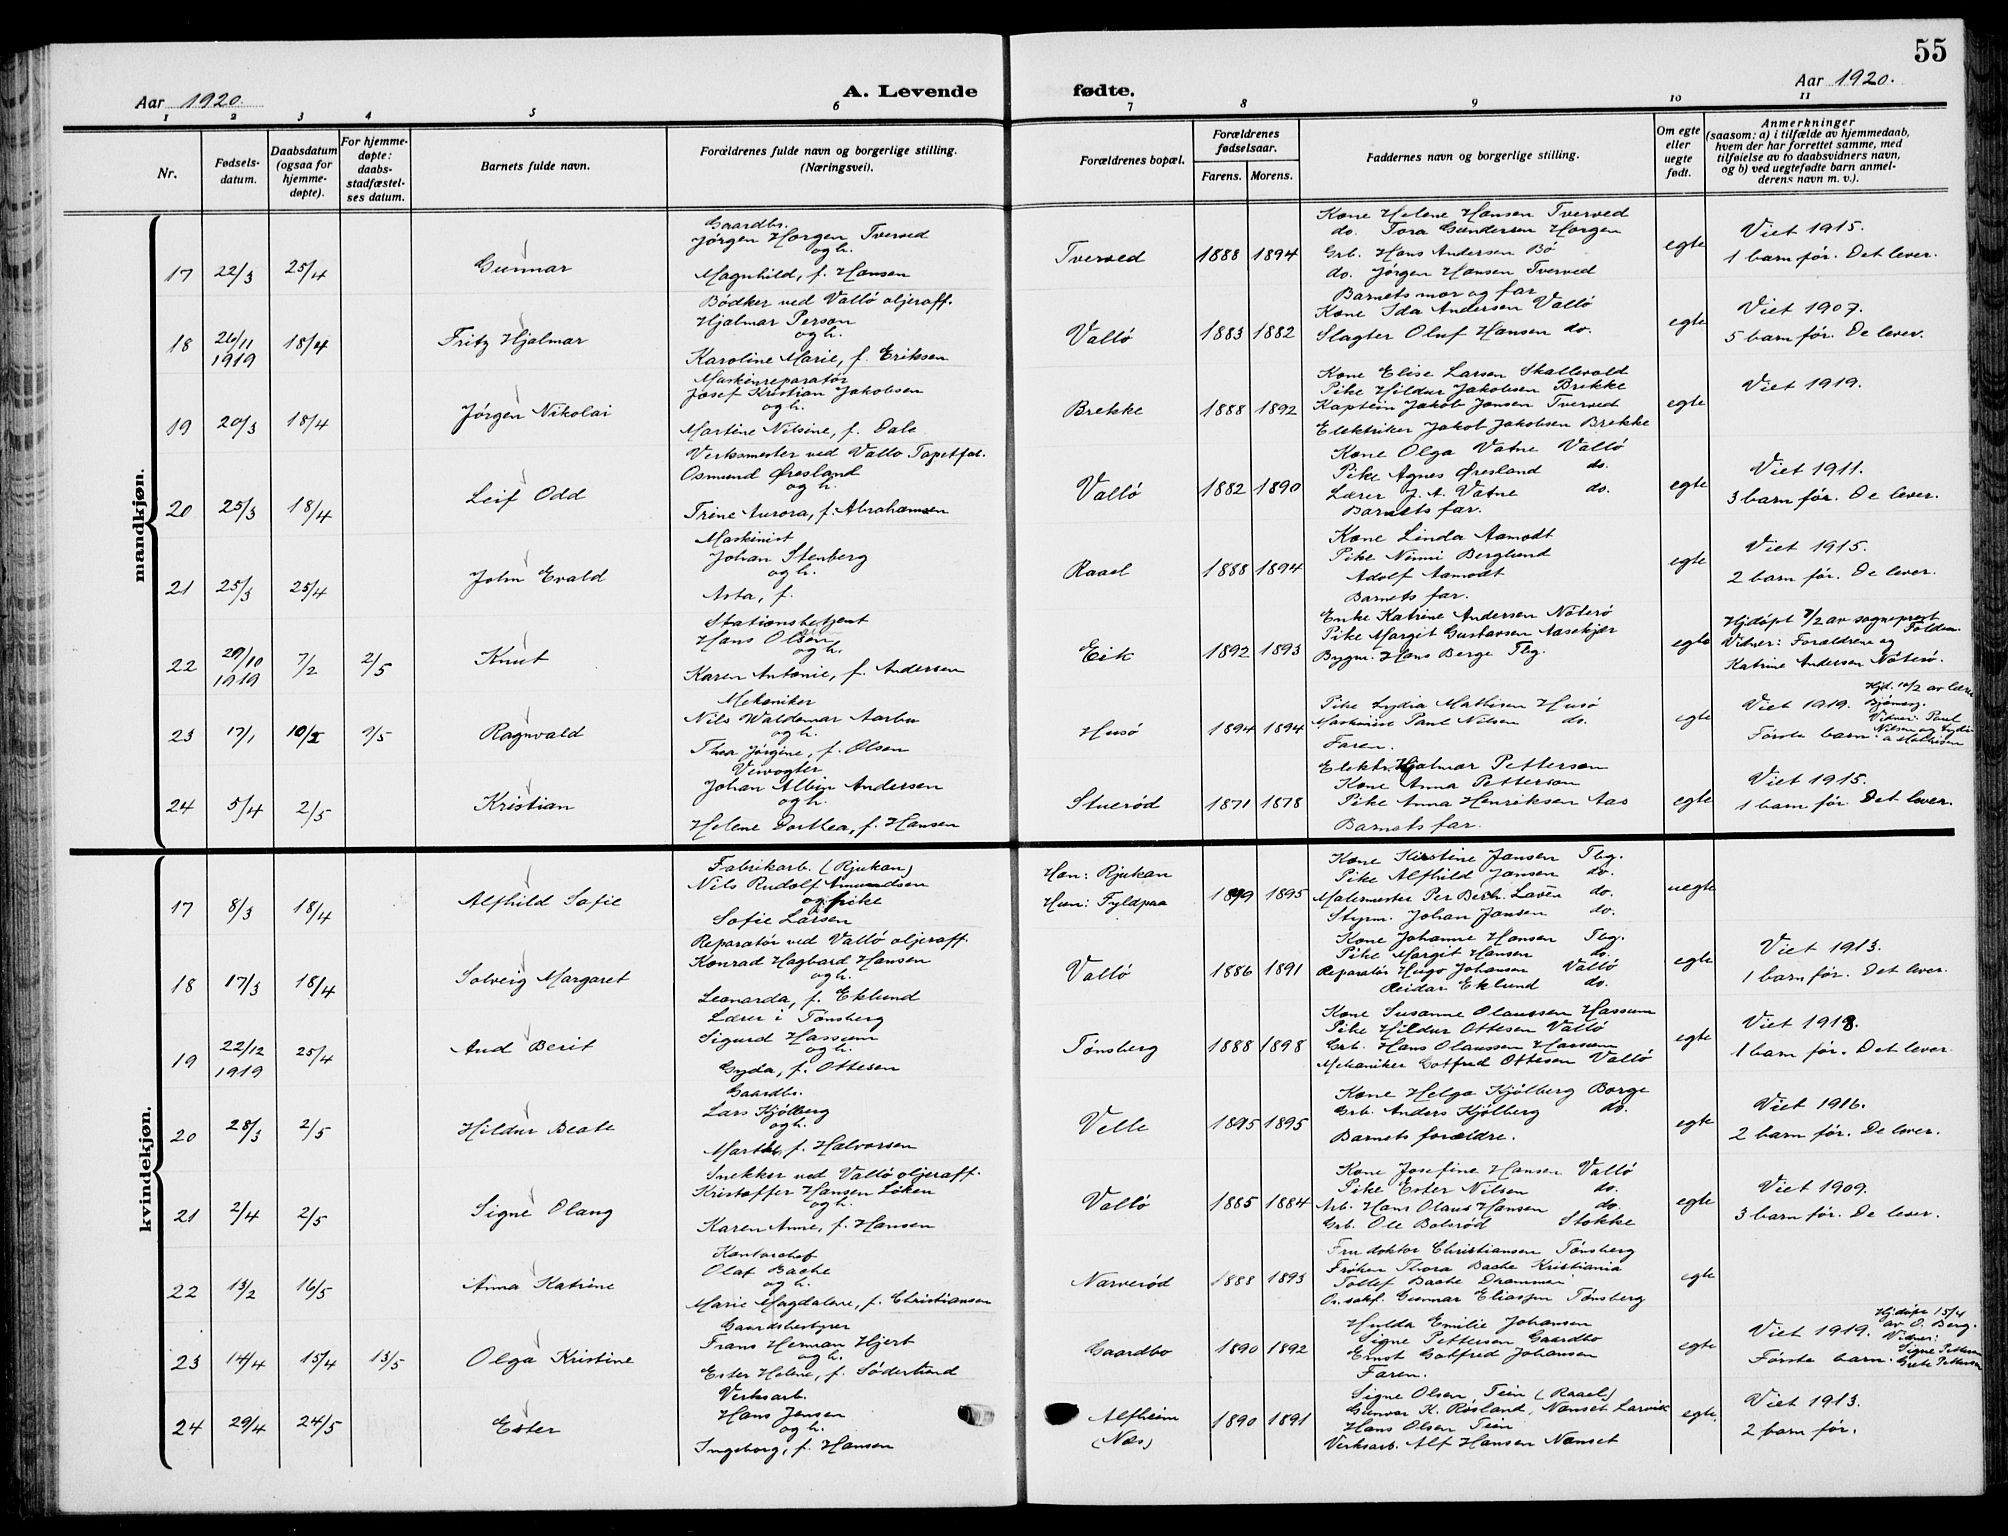 55
Aar 1920.
A. Levende
fødte.
Aar 1920.
1 2 3 4 5 6 7 8 9 10 11
Nr.
Fødsels-
datum.
Daabsdatum
(ogsaa for
hjemme-
døpte).
For hjemme-
døpte:
daabs-
stadfæstel-
ses datum.
Barnets fulde navn.
Forældrenes fulde navn og borgerlige stilling.
(Næringsvei).
Forældrenes bopæl.
Forældrenes
fødselsaar.
Farens. Morens.
Faddernes navn og borgerlige stilling.
Om egte
eller
uegte
født.
Anmerkninger
(saasom: a) i tilfælde av hjemmedaab,
hvem der har forrettet samme, med
tilføielse av to daabsvidners navn,
og b) ved uegtefødte barn anmel-
derens navn m. v.).
mandkjøn.
17 22/3 25/4 Gunnar
Gaardbr.
Jørgen Horgen Tverved
og h.
Magnhild, f. Hansen
Tverved 1888 1894
Kone Helene Hansen Tverved
do. Tora Gundersen Horgen
Grb. Hans Andersen Bø
do. Jørgen Hansen Tverved
Barnets mor og far
egte
Viet 1915.
1 barn før. Det lever.
18 26/11 1919 18/4 Fritz Hjalmar
Bødker ved Vallö oljeraff.
Hjalmar Person
og h.
Karoline Marie, f. Eriksen
Vallö 1883 1882
Kone Ida Andersen Vallö
Slagter Oluf Hansen do.
egte
Viet 1907.
5 barn før. De lever.
19 20/3 18/4 Jørgen Nikolai
Maskinreparatör
Josef Kristian Jakobsen
og h.
Martine Nilsine, f. Dale
Brekke 1888 1892
Kone Elise Larsen Skallevold
Pike Hildur Jakobsen Brekke
Kaptein Jakob Jansen Tverved
Elektriker Jakob Jakobsen Brekke
egte
Viet 1919.
20 25/3 18/4 Leif Odd
Verksmester ved Vallö Tapetfab.
Osmund Øresland
og h.
Trine Aurora, f. Abrahamsen
Vallö 1882 1890
Kone Olga Vatne Vallö
Pike Agnes Øresland do.
Lærer J. A. Vatne do.
Barnets far.
egte
Viet 1911.
3 barn før. De lever.
21 25/3 25/4 John Evald
Maskinist
Johan Stenberg
og h.
Asta, f.
Raael 1888 1894
Kone Linda Aamodt
Pike Nenni Berglund
Adolf Aamodt
Barnets far.
egte
Viet 1915.
2 barn før. De lever.
22 29/10 1919 7/2 2/5 Knut
Stationsbetjent
Hans Olsen
og h.
Karen Antonie, f. Andersen
Eik 1892 1893
Enke Katrine Andersen Nöterö
Pike Margit Gustavsen Aasekjær
Bygm. Hans Berge Tbg.
egte
Hjdöpt 7/2 av sogneprest
Folden.
Vidner: Forældrene og
Katrine Andersen Nöterö.
23 17/1 10/2 9/5 Ragnvald
Mekaniker
Nils Waldemar Aarbu
og h.
Thea Jörgine, f. Olsen
Husö 1894 1894
Pike Lydia Mathisen Husö
Maskinist Paul Nilsen do.
Faren.
egte
Viet 1919.
Første barn.
Hjd. 10/2 av lærer
Vidner: Paul
Nilsen og Lydia
Mathisen
24 5/4 2/5 Kristian
Veivogter
Johan Albin Andersen
og h.
Helene Dorthea, f. Hansen
Stuerød 1871 1878
Elektr. Hjalmar Petterson
Kone Anna Petterson
Pike Anna Henriksen Aas
Barnets far.
egte
Viet 1915.
1 barn før. Det lever.
kvindekjøn.
17 8/3 18/4 Alfhild Sofie
Fabrikarb. (Rjukan)
Nils Rudolf Amundsen
og pike
Sofie Larsen
Han: Rjukan
Hun: Fyldpaa
1895
Kone Kirstine Jansen Tbg.
Pike Alfhild Jansen do.
Malermester Per Berh. Larsen do.
Styrm. Johan Jansen do.
uegte
18 17/3 18/4 Solveig Margaret
Reparatør ved Vallö oljeraff.
Konrad Hagbard Hansen
og h.
Leonarda, f. Eklund
Vallö 1886 1891
Kone Johanne Hansen Tbg.
Pike Margit Hansen do.
Reparatör Hugo Johansen Vallö
Reidar Eklund do.
egte
Viet 1913.
1 barn før. Det lever.
19 22/12 1919 25/4 Aud Berit
Lærer i Tønsberg
Sigurd Hassum
og h.
Gyda, f. Ottesen
Tønsberg 1888 1898
Kone Susanne Olaussen Hassum
Pike Hildur Ottesen Vallö
Grb. Hans Olaussen Hassum
Mekaniker Gotfred Ottesen Vallö
egte
Viet 1918.
1 barn før. Det lever.
20 28/3 2/5 Hildur Beate
Gaardbr.
Lars Kjölberg
og h.
Marthe, f. Halvorsen
Velle 1895 1895
Kone Helga Kjölberg Borge
Grb. Anders Kjölberg do.
Barnets forældre.
egte
Viet 1916.
2 barn før. De lever.
21 2/4 2/5 Signe Olaug
Snekker ved Vallö oljeraff.
Kristoffer Hansen Løken
og h.
Karen Anne, f. Hansen
Vallö 1885 1884
Kone Josefine Hansen Vallö
Pike Ester Nilsen do.
Arb. Hans Olaus Hansen do.
Grb. Ole Bolsrød Stokke
egte
Viet 1909.
3 barn før. De lever.
22 13/2 16/5 Anna Katrine
Kontorchef
Olaf Bache
og h.
Marie Magdalene, f. Christiansen
Narverød 1888 1893
Fru doktor Christiansen Tønsberg
Frøken Thora Bache Kristiania
Tollef Bache Drammen
O.r.sakf. Gunnar Eliassen Tønsberg
egte
23 14/4 15/4 13/5 Olga Kristine
Gaardsbestyrer
Frans Herman Hjert
og h.
Ester Helene, f. Söderlund
Gaardbo 1890 1892
Hulda Emilie Johansen
Signe Pettersen Gaardbo
Ernst Gotfred Johansen
Faren.
egte
Viet 1919.
Første barn.
Hjdöpt 15/4
av O. Berg.
Vidner:
Signe Pettersen
Grete Pettersen
24 29/4 24/5 Ester
Verksarb.
Hans Jensen
og h.
Ingeborg, f. Hansen
Alfheim
(Næs)
1890 1891
Signe Olsen, Tein (Raael)
Gunvor K. Røsland, Nanset Larvik
Hans Olsen Tein
Verksarb. Alf Hansen Nanset
egte.
Viet 1913.
2 barn før.